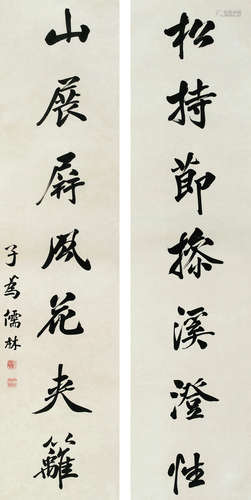 松持節操溪澄性
山展屏風花夾籬
子苾儒林